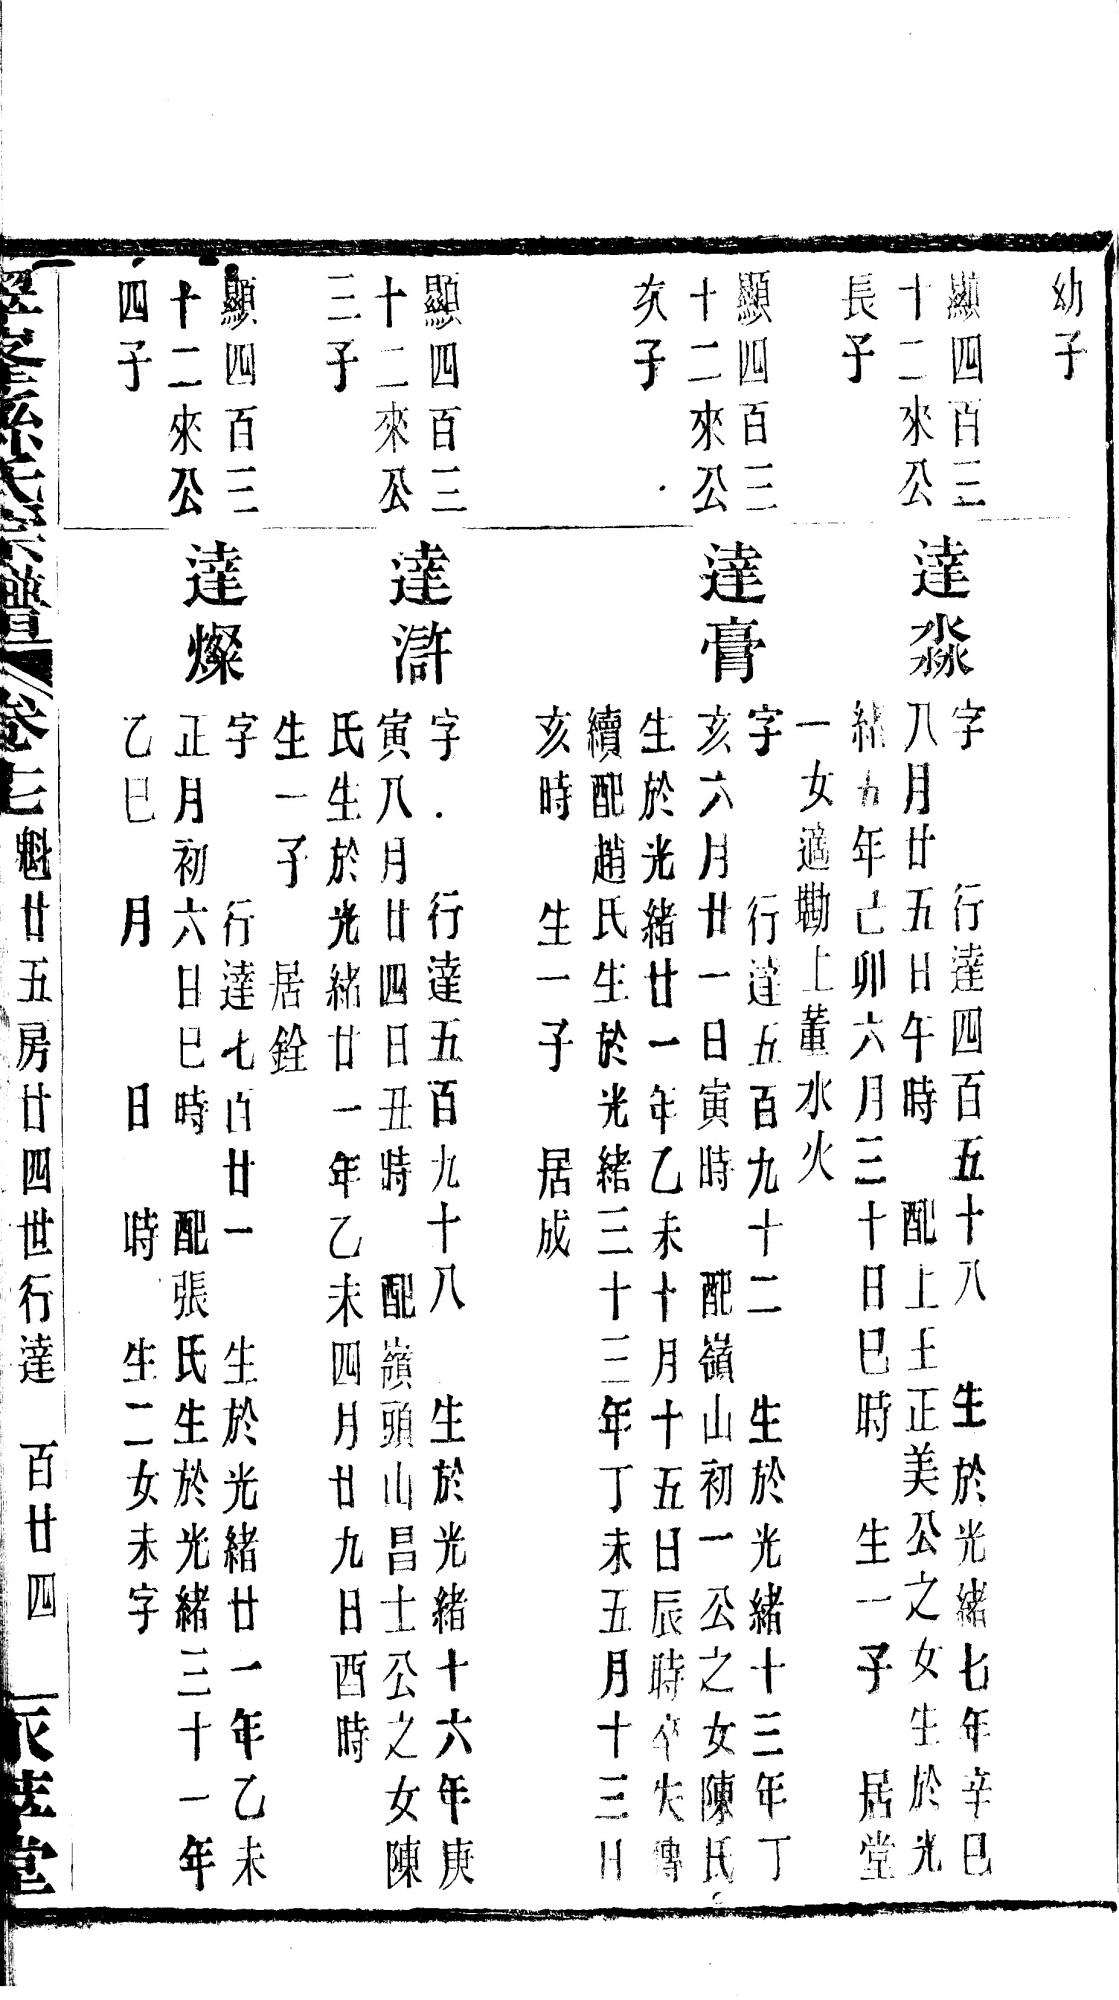 幼子
顯四百三
十二來公
長子
達淼
字　行達四百五十八　生於光緒七年辛巳
八月廿五日午時　配上王正美公之女生於光
緒五年己卯六月三十日巳時　生一子　居堂
一女適勘上董水火
顯四百三
十二來公
次子
達膏
字　行達五百九十二　生於光緒十三年丁
亥六月廿一日寅時　配嶺山初一公之女陳氏
生於光緒廿一年乙未十月十五日辰時卒失傳
續配趙氏生於光緒三十三年丁未五月十三日
亥時　生一子　居成
顯四百三
十二來公
三子
達滸
字　行達五百九十八　生於光緒十六年庚
寅八月廿四日丑時　配嶺頭山昌士公之女陳
氏生於光緒廿一年乙未四月廿九日酉時
生一子　居銓
顯四百三
十二來公
四子
達燦
字　行達七百廿一　生於光緒廿一年乙未
正月初六日巳時　配張氏生於光緒三十一年
乙巳　月　日　時　生二女未字
孫氏宗譜　卷七　魁廿五房廿四世行達　百廿四　堂